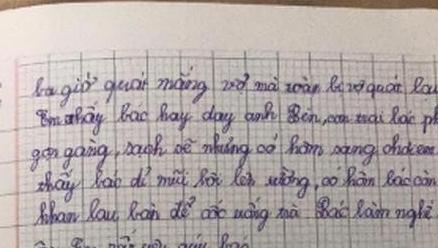 ba giờ quát mắng vợ mà toàn bị vợ quát lại
Em thấy bác hay dạy anh Bên, con trai bác ph
gọn gàng, sạch sẽ nhưng có hôm sang chơi em
thấy bác dí mũi hôi lên tường, có hôm bác còn
khăn lau bàn để cốc uống mà Bác làm nghề